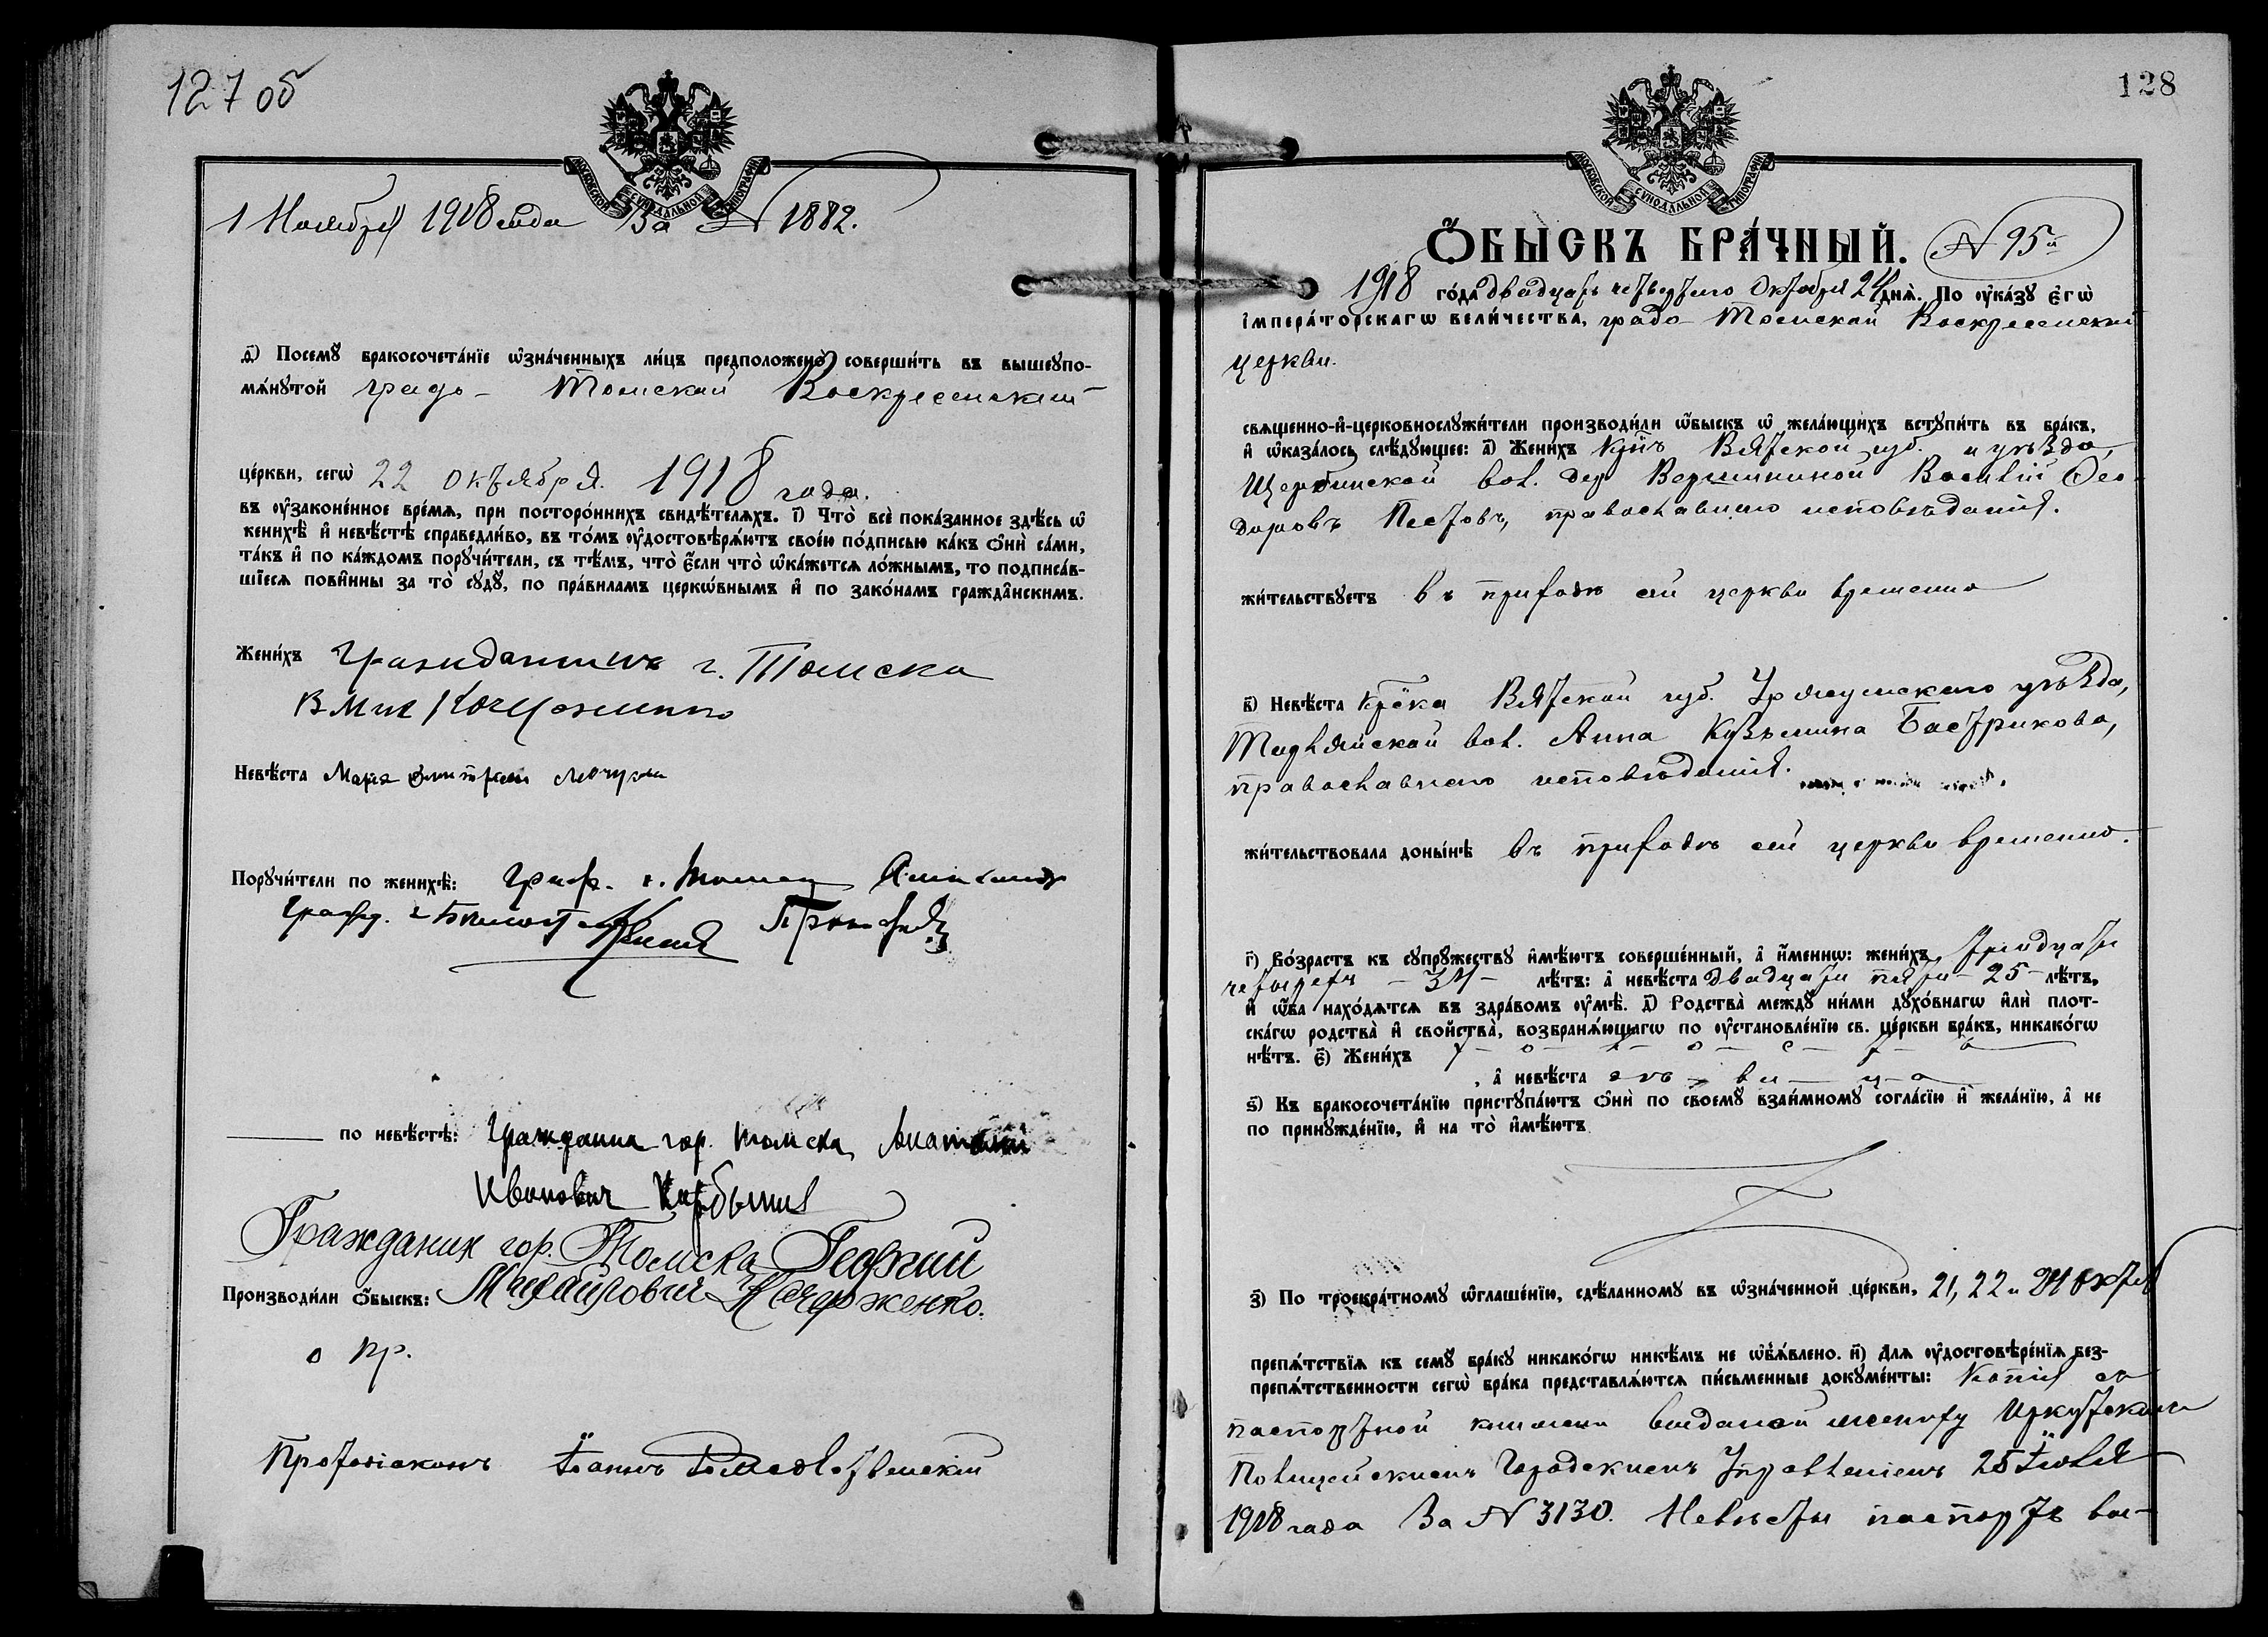 127 об
МОСКОВСКОЙ СѴНОДАЛЬНОЙ ТИПОГРАФІИ
1 Ноября 1918 года За № 1882.
д҃) Посемꙋ̀ бракосочета́нїе ѡ҆зна́ченныхъ ли́цъ предположено̀ соверши́ть въ вышеꙋпо-
мѧ́нꙋтой градо- Томской Воскресенской
це́ркви, сегѡ̀ 22 октября. 1918 года.
въ ᲂу҆законе́нное вре́мѧ, при посторо́ннихъ свидѣ́телѧхъ. і҃) Что̀ всѐ пока́занное здѣ́сь ѡ҆
женихѣ̀ и҆ невѣ́стѣ справедли́во, въ то́мъ ᲂу҆достовѣрѧ́ютъ свое́ю по́дписью ка́къ ѻ҆нѝ са́ми,
та́къ и҆ по ка́ждомъ порꙋчи́тели, съ тѣ́мъ, что̀ є҆́сли что̀ ѡ҆ка́жетсѧ ло́жнымъ, то подписа́в-
шїесѧ пови́нны за то̀ сꙋдꙋ̀, по пра́виламъ церкѡ́внымъ и҆ по зако́намъ гражда́нскимъ.
Жени́хъ Гражданинъ г. Томска
Невѣ́ста Марія
Порꙋчи́тели по женихѣ̀: Граж. г. Томска
Гражд. г.
по невѣ́стѣ: Гражданин гор. Томска, Анатолий
Иванович Карбышев
Гражданин гор. Томска Георгий
Производи́ли ѻ҆́быскъ: Михайлович
о пр.
Протодіаконъ Іоаннъ
128
МОСКОВСКОЙ СѴНОДАЛЬНОЙ ТИПОГРАФІИ
Ѻ҆́БЫСКЪ БРА́ЧНЫЙ. № 95й
1918 го́да двадцать четвертаго Октября 24 днѧ̀. По ᲂу҆ка́зꙋ є҆гѡ̀
і҆мпера́торскагѡ вели́чества, градо-Томской Воскресенской
церкви.
свѧщенно-и҆-церковнослꙋжи́тели производи́ли ѡ҆́быскъ ѡ҆ жела́ющихъ встꙋпи́ть въ бра́къ,
и҆ ѡ҆каза́лось слѣ́дꙋющее: а҃) Жени́хъ Кр̃нъ Вятской губ. и уѣзда,
Щербинской вол. дер. Вершининой Василій Ѳео-
доровъ Пестовъ, православнаго исповѣданія.
жи́тельствꙋетъ въ приходѣ сей церкви временно
в҃) Невѣ́ста Кр̃ка Вятской губ. Уржумскаго уѣзда,
вол. Анна Кузьмина Бастрикова,
православнаго исповѣданія.
жи́тельствовала доны́нѣ въ приходѣ сей церкви временно.
г҃) Во́зрастъ къ сꙋпрꙋ́жествꙋ и҆мѣ́ютъ соверше́нный, а҆ и҆́меннѡ: жени́хъ тридцати
четырехъ - 34 - лѣ́тъ: а҆ невѣ́ста двадцати пяти - 25 - лѣ́тъ,
и҆ ѡ҆́ба нахо́дѧтсѧ въ здра́вомъ ᲂу҆мѣ̀. д҃) Родства̀ междꙋ̀ ни́ми дꙋхо́внагѡ и҆лѝ плот-
ска́гѡ родства̀ и҆ свойства̀, возбранѧ́ющагѡ по ᲂу҆становле́нїю св. це́ркви бра́къ, никако́гѡ
нѣ́тъ. є҃) Жени́хъ х - о - л - о - с - т - ъ
, а҆ невѣ́ста дѣ - ви - ц - а
ѕ҃) Къ бракосочета́нїю пристꙋпа́ютъ ѻ҆нѝ по своемꙋ̀ взаи́мномꙋ согла́сїю и҆ жела́нїю, а҆ не
по принꙋжде́нїю, и҆ на то̀ и҆мѣ́ютъ
з҃) По троекра́тномꙋ ѡ҆глаше́нїю, сдѣ́ланномꙋ въ ѡ҆зна́ченной це́ркви, 21, 22 и 24 Октя
препѧ́тствїѧ къ семꙋ̀ бра́кꙋ никако́гѡ никѣ́мъ не ѡ҆б̾ѧ́влено. и҃) Длѧ ᲂу҆достовѣре́нїѧ без-
препѧ́тственности сегѡ̀ бра́ка представлѧ́ютсѧ пи́сьменные докꙋме́нты: Копія съ
паспортной книжки выданой жениху Иркутскимъ
Полицейскимъ Городскимъ Управленіемъ 25 Іюля
1918 года За № 3130. Невѣсты паспортъ вы-